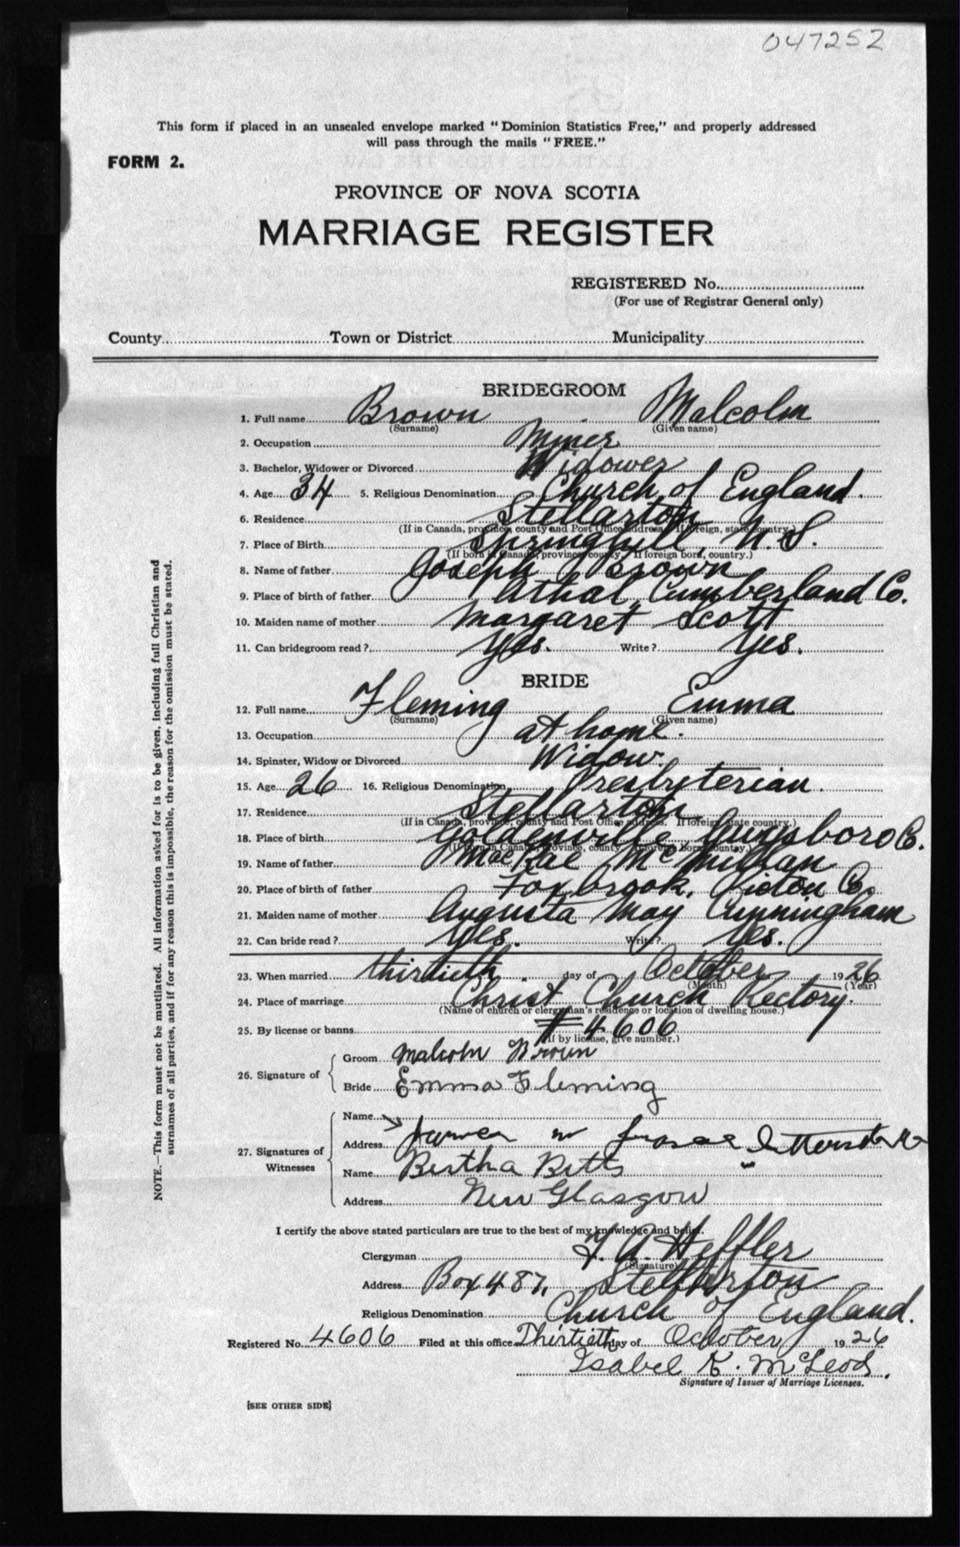 047252
This form if placed in an unsealed envelope marked "Dominion Statistics Free," and properly addressed
will pass through the mails "FREE."
FORM 2.
PROVINCE OF NOVA SCOTIA
MARRIAGE REGISTER
REGISTERED No.
(For use of Registrar General only)
County Town or District Municipality
BRIDEGROOM
1. Full name Brown Malcolm
(Surname) (Given name)
2. Occupation Miner
3. Bachelor, Widower or Divorced Widower
4. Age 34 5. Religious Denomination Church of England.
6. Residence Stellarton
(If in Canada, province, county and Post Office address. If foreign, state country.)
7. Place of Birth Springhill, N.S.
(If born in Canada, province, county. If foreign born, country.)
8. Name of father Joseph Brown
9. Place of birth of father Athol, Cumberland Co.
10. Maiden name of mother Margaret Scott
11. Can bridegroom read? Yes. Write? Yes.
BRIDE
12. Full name Fleming Emma
(Surname) (Given name)
13. Occupation at home.
14. Spinster, Widow or Divorced Widow.
15. Age 26 16. Religious Denomination Presbyterian.
17. Residence Stellarton
(If in Canada, province, county and Post Office address. If foreign, state country.)
18. Place of birth Goldenville Guysboro Co.
19. Name of father MacRae McMillan
20. Place of birth of father Foxbrook, Pictou Co.
21. Maiden name of mother Augusta May Cunningham
22. Can bride read? Yes. Write? Yes.
23. When married thirtieth. day of October 1926
(Month) (Year)
24. Place of marriage Christ Church Rectory.
(Name of church or clergyman's residence or location of dwelling house.)
25. By license or banns # 4606
(If by license, give number.)
26. Signature of Groom Malcolm Brown
Bride Emma Fleming
27. Signatures of Witnesses
Name
Address
Name Bertha Betts
Address New Glasgow
I certify the above stated particulars are true to the best of my knowledge and belief.
Clergyman Heffler
(Signature)
Address Box 487, Stellarton
Religious Denomination Church of England.
Registered No. 4606 Filed at this office Thirtieth day of October 1926
Isabel K. McLeod.
Signature of Issuer of Marriage Licenses.
[SEE OTHER SIDE]
NOTE.—This form must not be mutilated. All information asked for is to be given, including full Christian and
surnames of all parties, and if for any reason this is impossible, the reason for the omission must be stated.